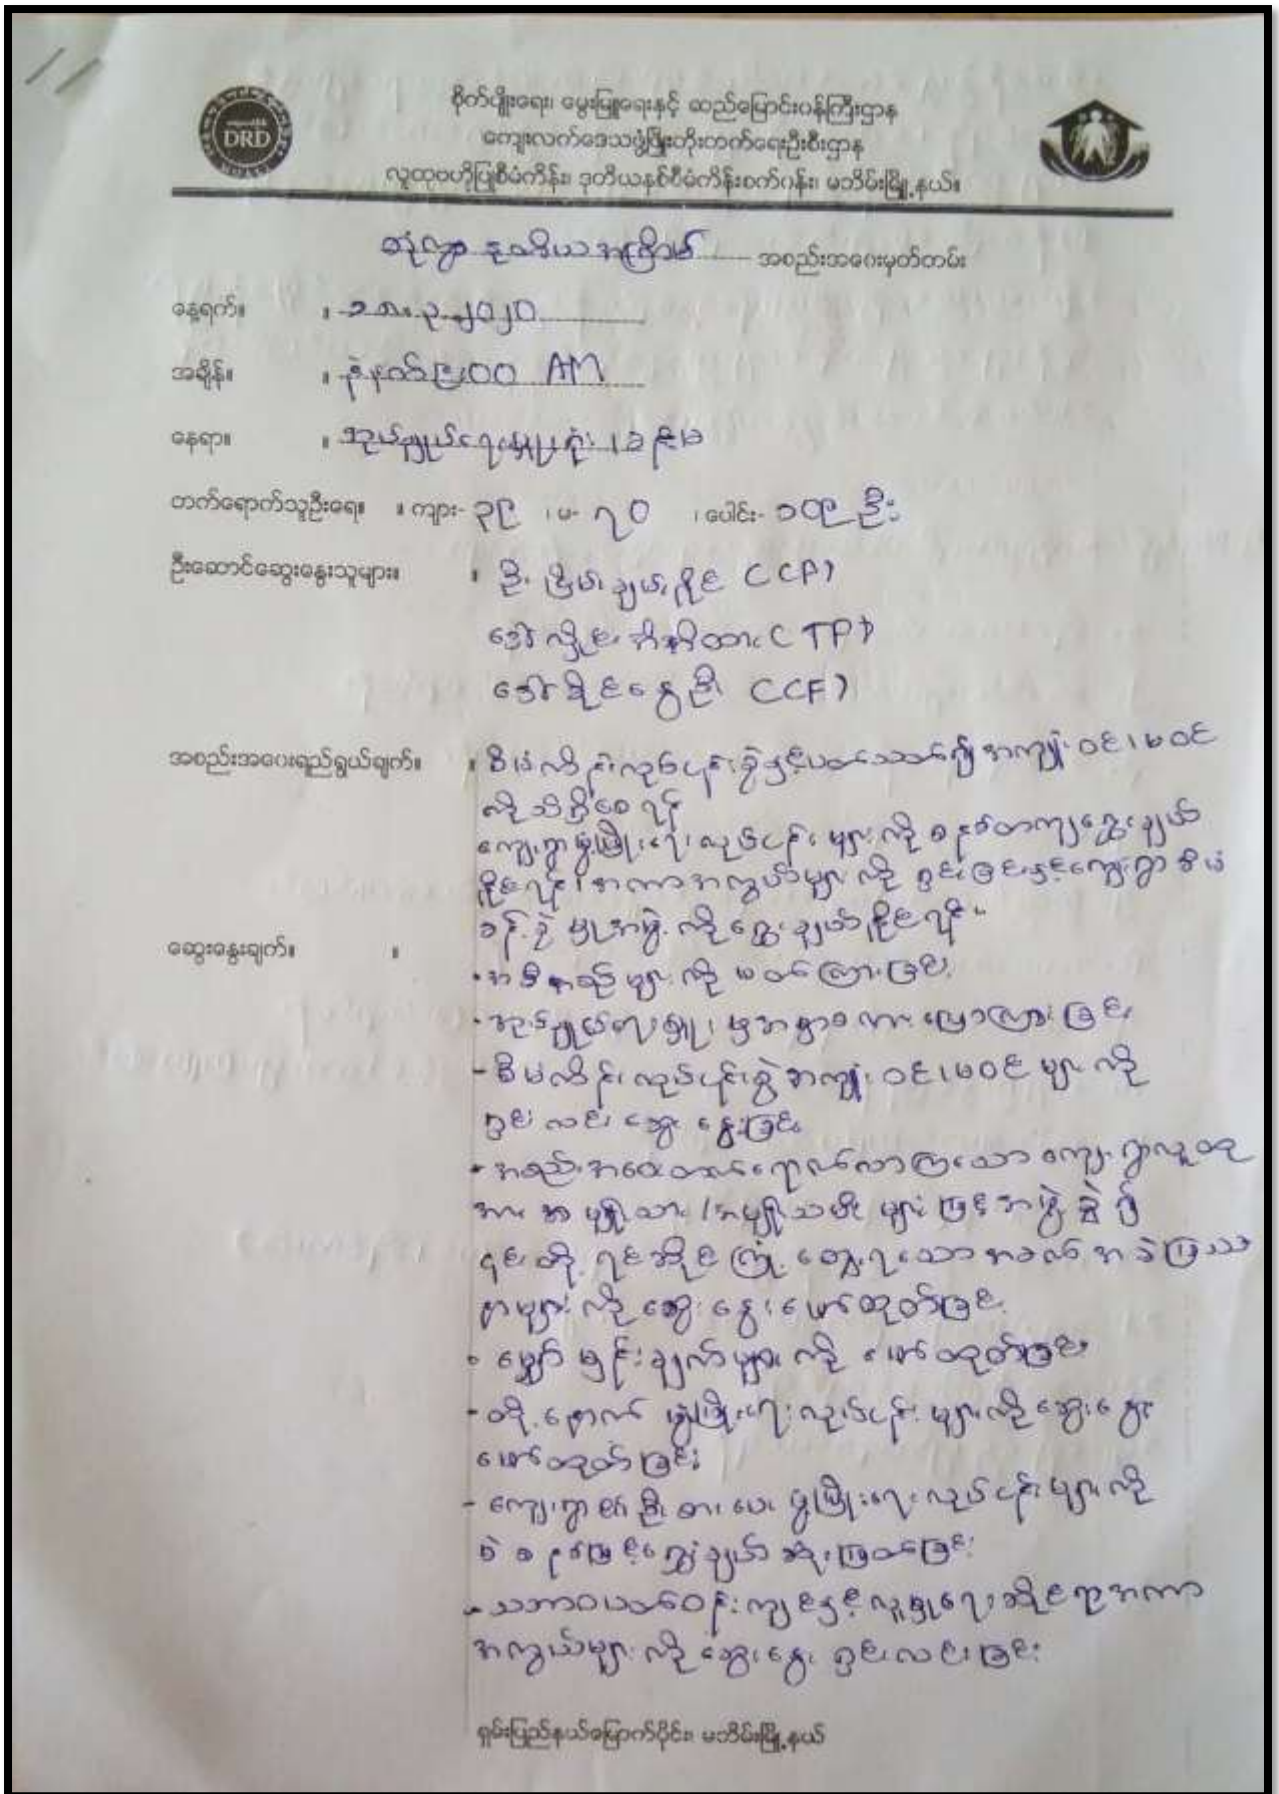 DRD
စိုက်ပျိုးရေး၊ မွေးမြူရေးနှင့် ဆည်မြောင်းဝန်ကြီးဌာန
ကျေးလက်ဒေသဖွံ့ဖြိုးတိုးတက်ရေးဦးစီးဌာန
လူထုဗဟိုပြုစီမံကိန်း၊ ဒုတိယနှစ်စီမံကိန်းစက်ဝန်း၊ မဘိမ်းမြို့နယ်။
ဒုတိယအကြိမ် အစည်းအဝေးမှတ်တမ်း
နေ့ရက်။ ။ ၁၈.၃.၂၀၂၀
အချိန်။ ။ နံနက် ၉:၀၀ AM
နေရာ။ ။ အုပ်ချုပ်ရေးမှူးရုံး
တက်ရောက်သူဦးရေ။ ။ ကျား- ၃၉ ၊ မ- ၇၀ ၊ ပေါင်း- ၁၀၉ ဦး
ဦးဆောင်ဆွေးနွေးသူများ။ ။ ဦး ငြိမ်းချမ်းပိုင် (CF)
ဒေါ် (TF)
ဒေါ် ခိုင်နွေဦး (CF)
အစည်းအဝေးရည်ရွယ်ချက်။ ။ စီမံကိန်းလုပ်ငန်းစဉ်နှင့်ပတ်သတ်၍ အကျုံးဝင်၊ မဝင်
ကို သိရှိစေရန်
ကျေးရွာဖွံ့ဖြိုးရေးလုပ်ငန်းများကို စနစ်တကျရွေးချယ်
နိုင်ရန်၊ အကာအကွယ်များကို ရှင်းခြင်းနှင့်ကျေးရွာစီမံ
ခန့်ခွဲမှုအဖွဲ့ကို ရွေးချယ်နိုင်ရန်"
ဆွေးနွေးချက်။ ။
- အစီအစဉ်များကို ဖတ်ကြားခြင်း
- အုပ်ချုပ်ရေးမှူးမှအမှာစကားပြောကြားခြင်း
- စီမံကိန်းလုပ်ငန်းစဉ်အကျုံးဝင်၊ မဝင်များကို
ရှင်းလင်းဆွေးနွေးခြင်း
- အစည်းအဝေးတက်ရောက်လာကြသောကျေးရွာလူထု
အား အမျိုးသား/အမျိုးသမီးများဖြင့်အဖွဲ့ခွဲ၍
၎င်းတို့ရင်ဆိုင်ကြုံတွေ့ရသောအခက်အခဲပြဿ
နာများကို ဆွေးနွေးဖော်ထုတ်ခြင်း
- မျှော်မှန်းချက်များကို ဖော်ထုတ်ခြင်း
- ထို့နောက် ဖွံ့ဖြိုးရေးလုပ်ငန်းများကို ဆွေးနွေး
ဖော်ထုတ်ခြင်း
- ကျေးရွာ၏ ဦးစားပေးဖွံ့ဖြိုးရေးလုပ်ငန်းများကို
မဲစနစ်ဖြင့်ရွေးချယ်ဆုံးဖြတ်ခြင်း
- သဘာဝပတ်ဝန်းကျင်နှင့်လူမှုရေးဆိုင်ရာအကာ
အကွယ်များကို ဆွေးနွေးရှင်းလင်းခြင်း
ရှမ်းပြည်နယ်မြောက်ပိုင်း၊ မဘိမ်းမြို့နယ်